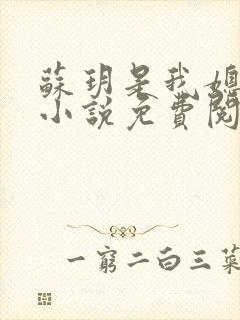 蘇玥是我媳
小說免費閱
一窮二白三菜